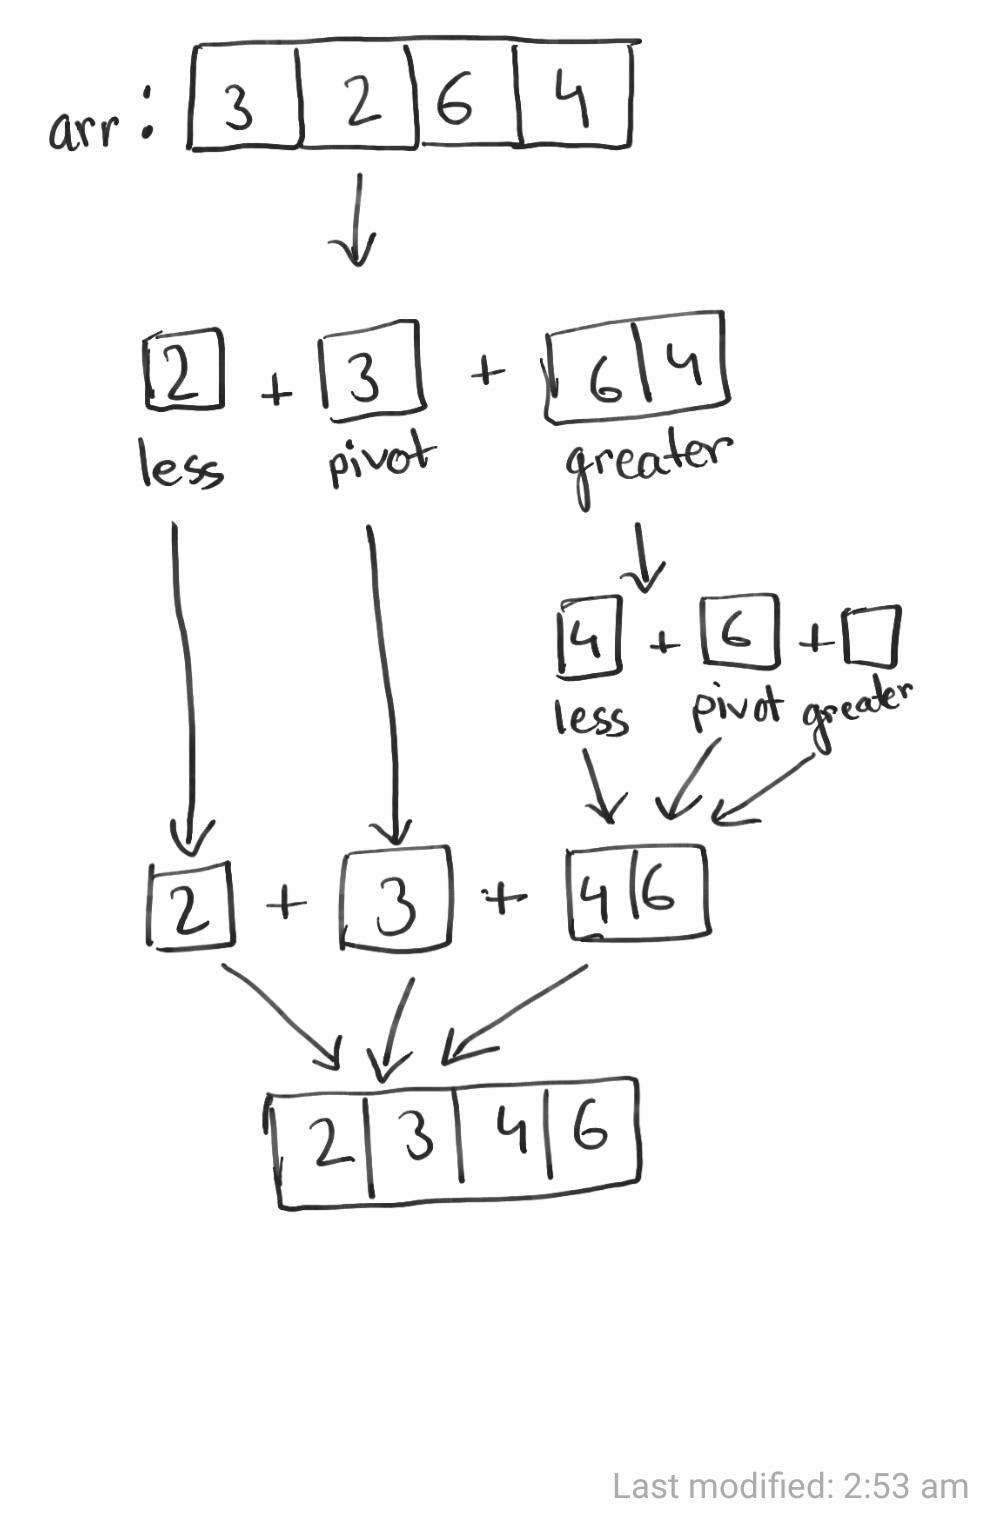 arr: 3 2 6 4
2 + 3 + 6 4
less pivot greater
4 + 6 +
less pivot greater
2 + 3 + 4 6
2 3 4 6
Last modified: 2:53 am